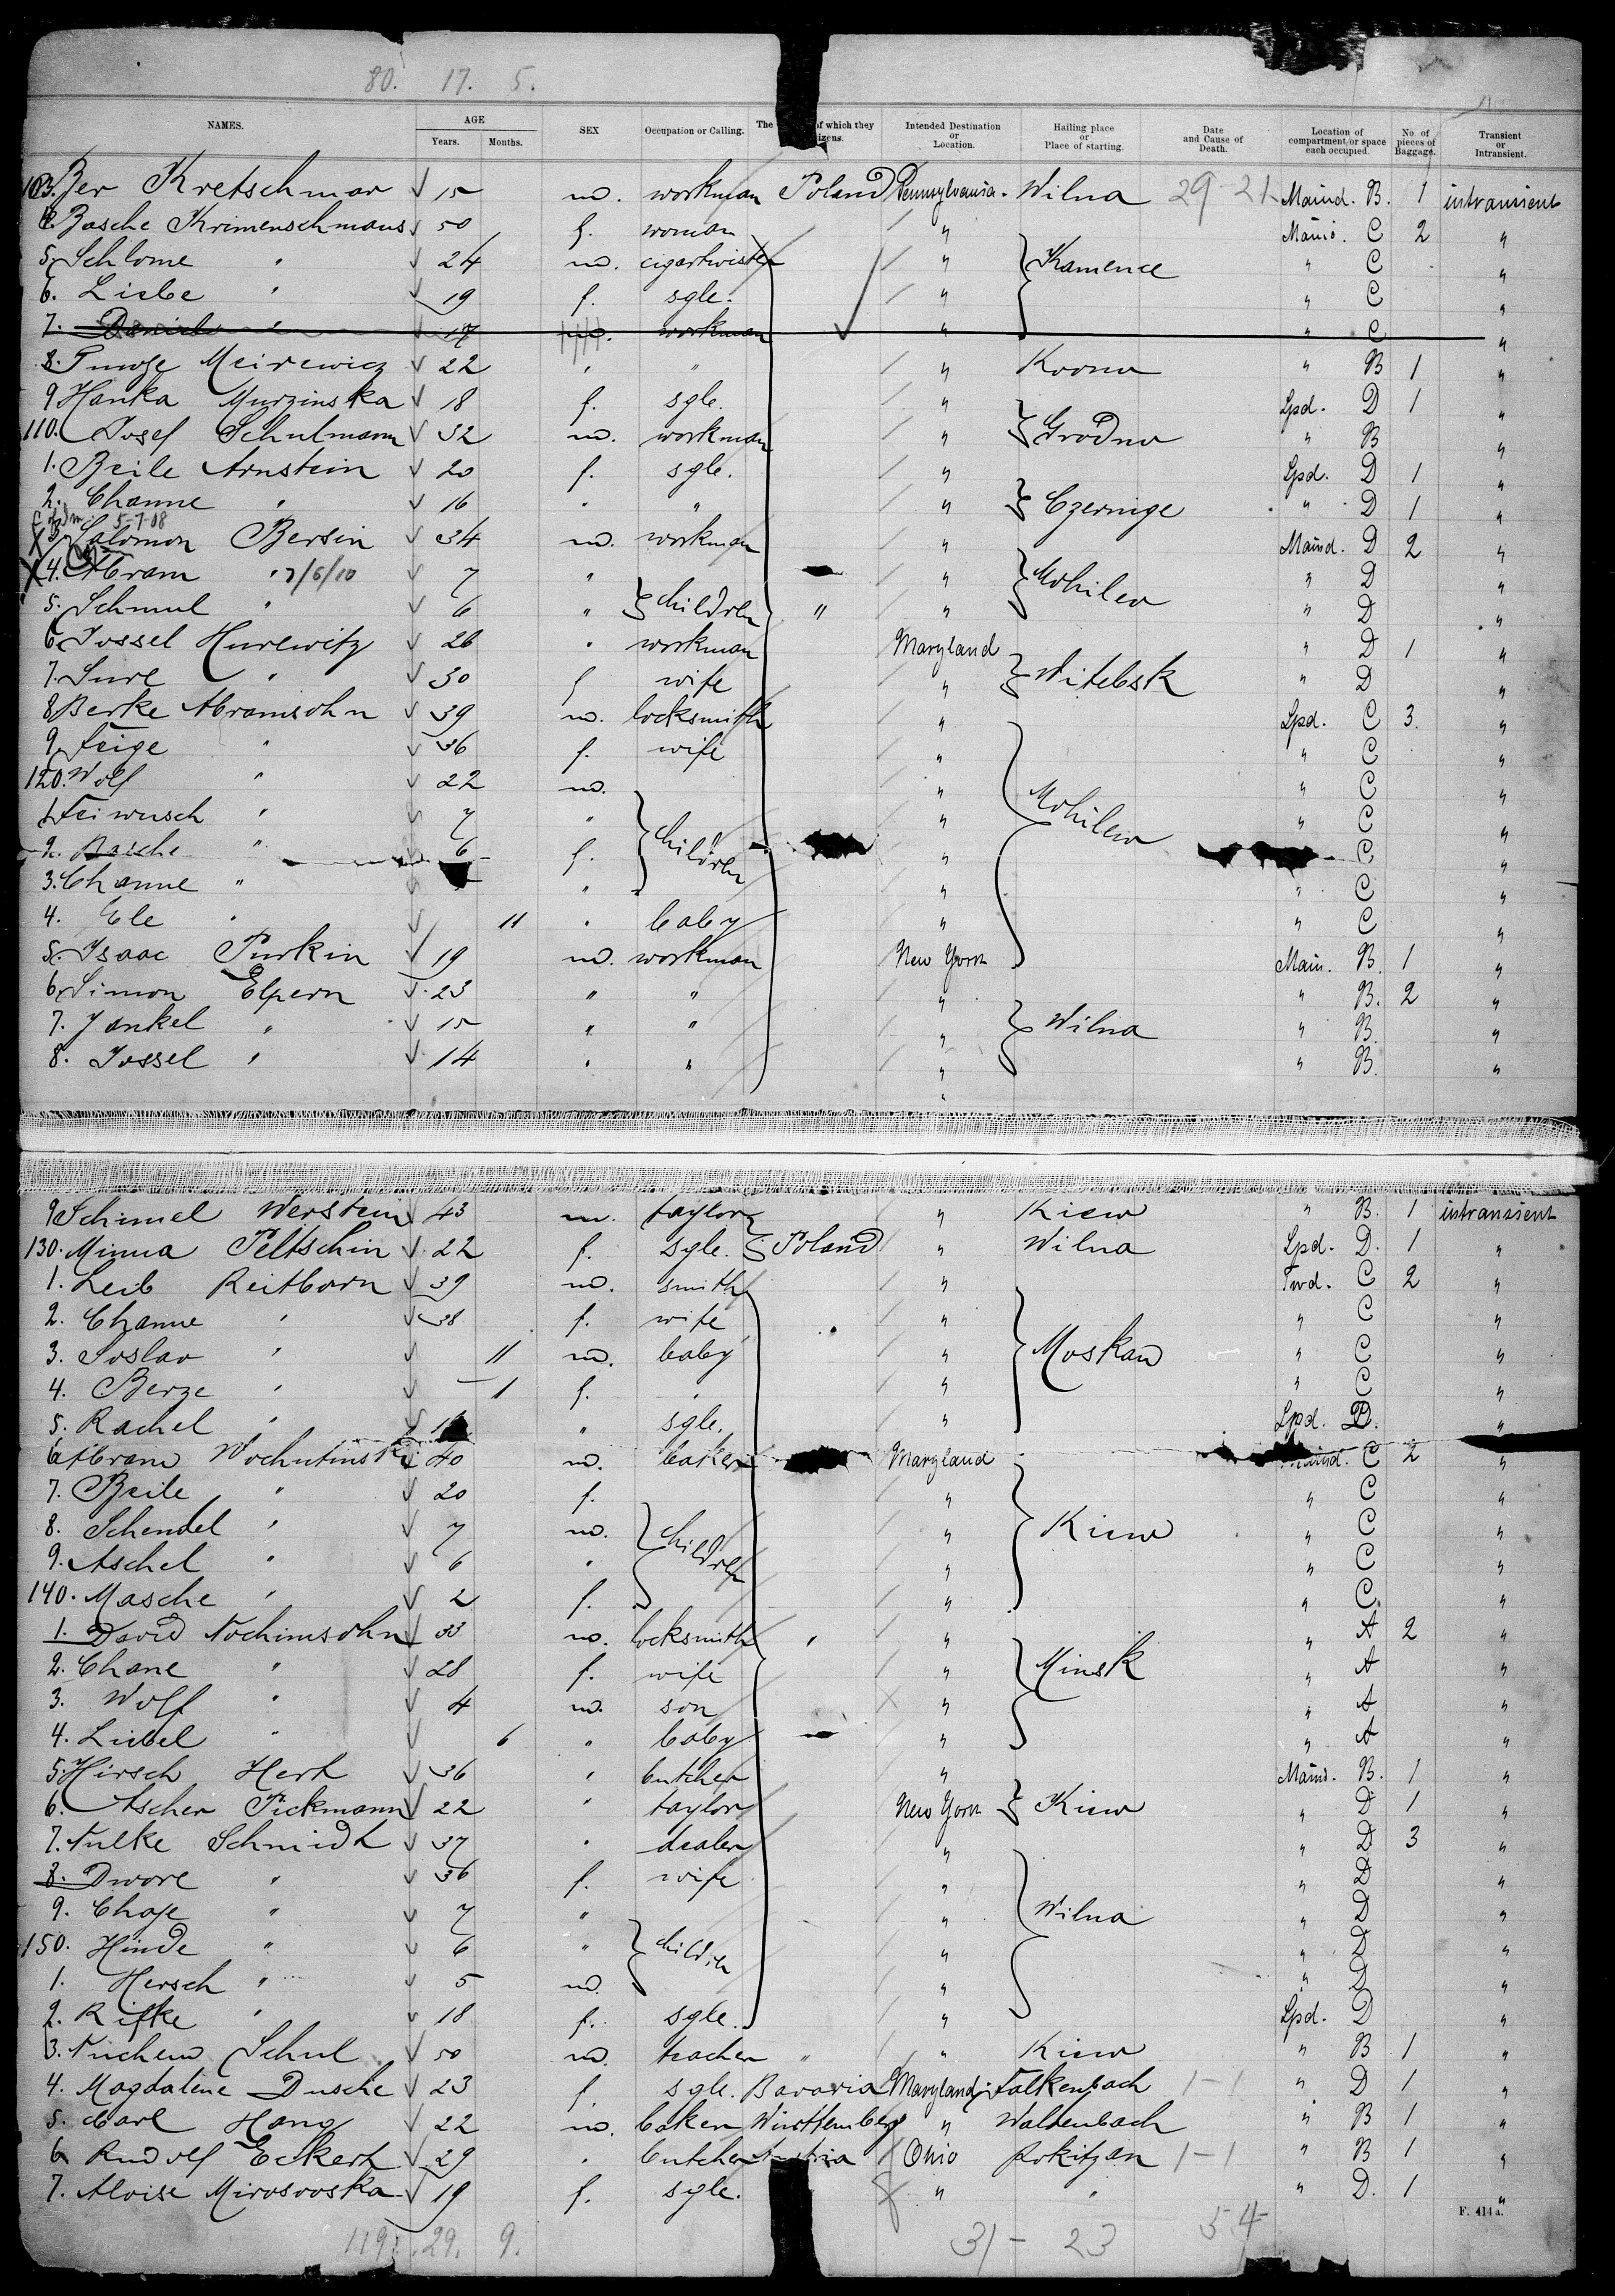 80. 17. 5.
NAMES. AGE Years. Months. SEX Occupation or Calling. The of which they izens. Intended Destination or Location. Hailing place or Place of starting. Date and Cause of Death. Location of compartment or space each occupied. No. of pieces of Baggage. Transient or Intransient.
103. Ber Kretschmar √ 15 m. workman Poland Pennsylvania. Wilna 29 21 Maind. B. 1 intransient
4. Basche Krimenschmaus √ 50 f. woman " Maind. C 2 "
5. Schlome " √ 24 m. cigartwister " Kamence " C "
6. Liebe " √ 19 f. sgle. " " C "
7. Daniel " √ 17 m. workman " " C "
8. Meirewicz √ 22 " " " Kovno " B 1 "
9 Hanka Murzinska √ 18 f. sgle. " Lpd. D 1 "
110. Josef Schulmann √ 32 m. workman " Grodno " B "
1. Beile Arnstein √ 20 f. sgle. " Lpd. D 1 "
2. Channe " √ 16 " " " Czernige " D 1 "
5-7-08
X 3. Salomon Bersin √ 34 m. workman " Maind. D 2 "
X 4. Abram " 7/6/10 √ 7 " " Mohilew " D "
5. Schmul " √ 6 " children " " " D "
6. Jossel Hurewitz √ 26 " workman Maryland " D 1 "
7. Sure " √ 30 f wife " Witebsk " D "
8 Berke Abramsohn √ 39 m. locksmith " Lpd. C 3. "
9. Feige " √ 36 f. wife " " C "
120. Wolf " √ 22 m. " " C "
1. Feiwusch " √ 7 " " Mohilew " C "
2. Basche " √ 6 f. children " C "
3. Channe " √ " " " C "
4. Ele " √ 11 " baby " " C "
5. Isaac Purkin √ 19 m. workman New York Main. B. 1 "
6. Simon Elpern √ 23 " " " " B. 2 "
7. Jankel " √ 15 " " " Wilna " B. "
8. Jossel " √ 14 " " " " B. "
9 Schimel Werstein √ 43 m. taylor " Kiew " B. 1 intransient
130. Minna Peltschin √ 22 f. sgle. Poland " Wilna Lpd. D. 1 "
1. Leib Reitborn √ 39 m. smith " Twd. C 2 "
2. Channe " √ 38 f. wife " " C "
3. Soslav " √ 11 m. baby " Moskau " C "
4. Berze " √ 1 f. " " " C "
5. Rachel " √ " sgle. " Lpd. D. "
6 Abram Wochutinski √ 40 m. baker Maryland C 2 "
7. Beile " √ 20 f. " " C "
8. Schendel " √ 7 m. children " Kiew " C "
9. Aschel " √ 6 " " " C "
140. Masche " √ 2 f. " " C. "
1. David Nochimsohn √ 33 m. locksmith " " " A 2 "
2. Chane " √ 28 f. wife " Minsk " A "
3. Wolf " √ 4 m. son " " A "
4. Liebel " √ 6 " baby " " A "
5. Hirsch Herk √ 36 " butcher " Maind. B. 1 "
6. Ascher Pickmann √ 22 " taylor New York Kiew " D 1 "
7. Nulke Schmidt √ 37 " dealer " " D 3 "
8. Dwore " √ 36 f. wife " " D "
9. Chaje " √ 7 " " Wilna " D "
150. Hinde " √ 6 " children " " D "
1. Hersch " √ 5 m. " " D "
2. Rifke " √ 18 f. sgle. " Lpd. D "
3. Nuchem Schul √ 50 m. teacher " " Kiew " B 1 "
4. Magdalene Dusche √ 23 f. sgle. Bavaria Maryland Falkenbach 1-1 " D 1 "
5. Carl Hang √ 22 m. baker Württemberg " Waldenbach " B 1 "
6 Rudolf Eckert √ 29 " butcher Austria Ohio Rokitzan 1-1 " B 1 "
7. Aloise Mirosovska √ 19 f. sgle. " " " D. 1 "
F. 414a.
119. 29. 9. 31- 23 54